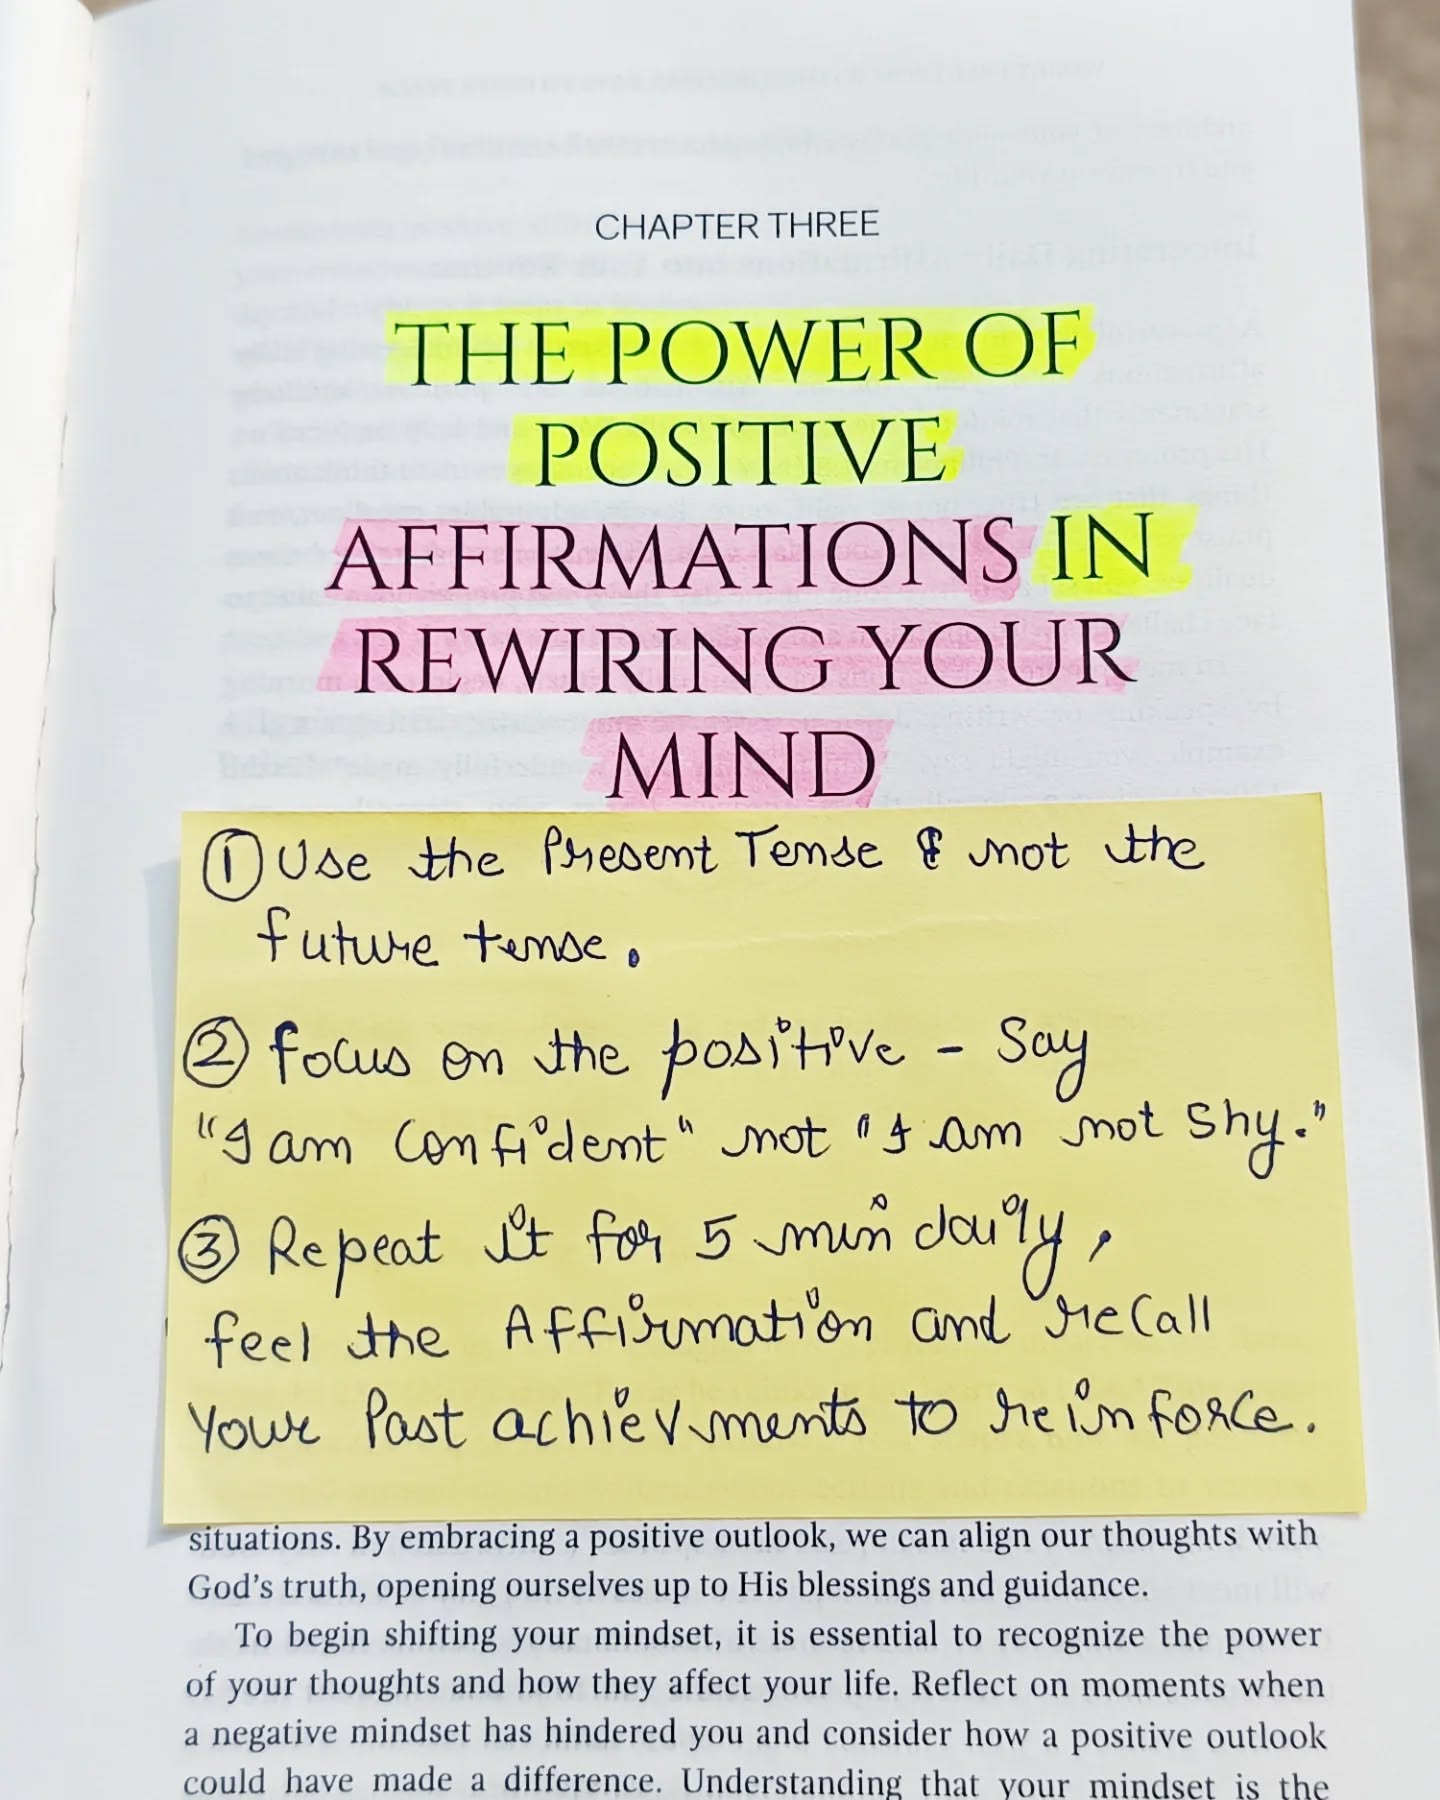 CHAPTER THREE
THE POWER OF
POSITIVE
AFFIRMATIONS IN
REWIRING YOUR
MIND
① Use the Present Tense & not the
future tense.
② focus on the positive - Say
"I am Confident" not "I am not Shy."
③ Repeat it for 5 min daily,
feel the Affirmation and recall
Your Past achievments to reinforce.
situations. By embracing a positive outlook, we can align our thoughts with
God's truth, opening ourselves up to His blessings and guidance.
To begin shifting your mindset, it is essential to recognize the power
of your thoughts and how they affect your life. Reflect on moments when
a negative mindset has hindered you and consider how a positive outlook
could have made a difference. Understanding that your mindset is the